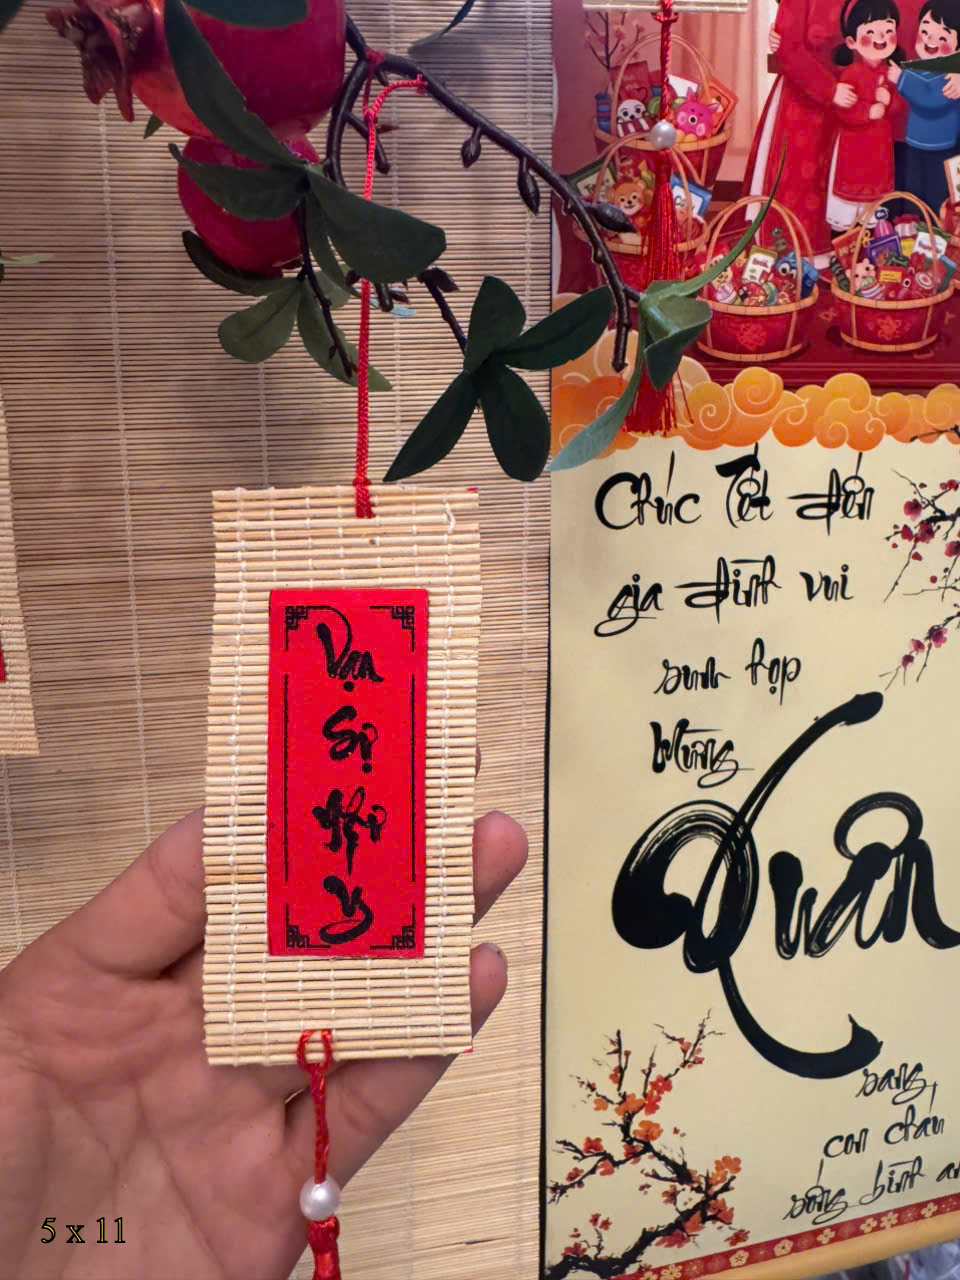 Vạn
Sự
Như
Ý
Chúc Tết đến
gia đình vui
sum họp
Mừng
Xuân
sang,
con cháu
sống bình an
5 x 11